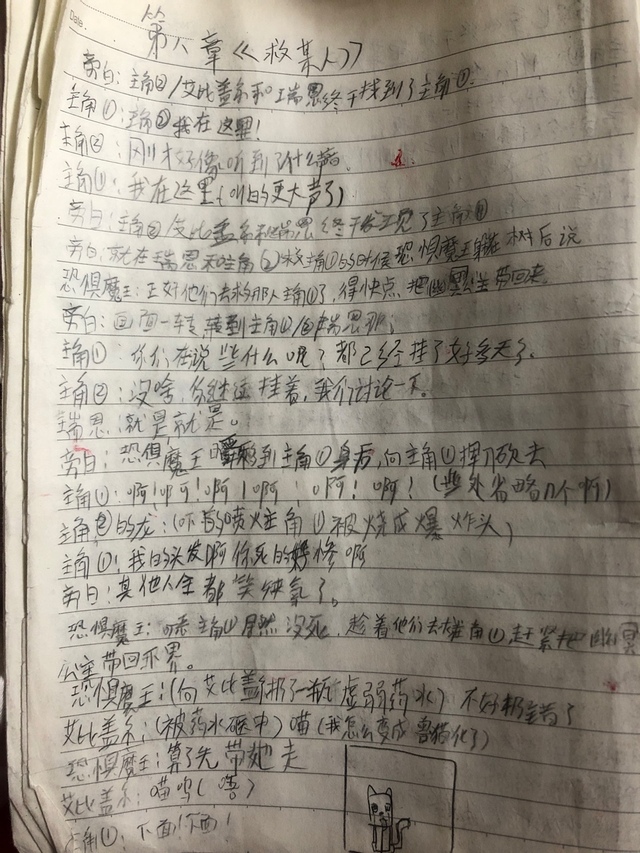 Date.
第八章《救某人》
旁白：主角②/艾比盖尔和瑞恩终于找到了主角①.
主角①：主角②我在这里！
主角②：刚才好像听到了什么声音.
主角①：我在这里（叫的更大声了）
旁白：主角②/艾比盖尔和瑞恩终于发现了主角①
旁白：就在瑞恩和主角②救主角①的时候恐惧魔王躲在树后说
恐惧魔王：正好他们去救那人主角①了，得快点把幽冥公主带回来.
旁白：画面一转转到主角①/②瑞恩那；
主角①：你们在说些什么呢？都已经挂了好多天了.
主角②：没啥,你继续挂着,我们讨论一下.
瑞恩：就是就是。
旁白：恐惧魔王移到主角①身后,向主角①挥刀砍去
主角①：啊！啊！啊！啊！啊！啊！（此处省略几个啊）
主角②的龙：（吓的喷火主角①被烧成爆炸头）
主角①：我的头发啊你死的好惨啊
旁白：其他人全都笑缺氧了。
恐惧魔王：主角①居然没死，趁着他们去主角①,赶紧把幽冥
公主带回冥界。
恐惧魔王：（向艾比盖尔扔了一瓶虚弱药水）不好扔错了
艾比盖尔：（被药水砸中）喵（我怎么变成兽猫化了）
恐惧魔王：算了先带她走
艾比盖尔：喵呜（答）
主角①：下面！下面！